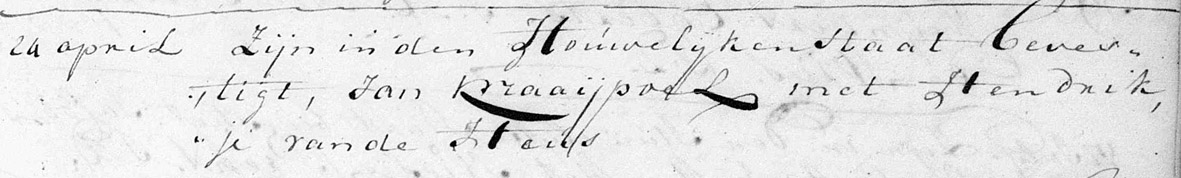 24 april Zijn in den Houwelijken staat beves„
„tigt, Jan Kraaijpoel met Hendrik,
„je van de Heús